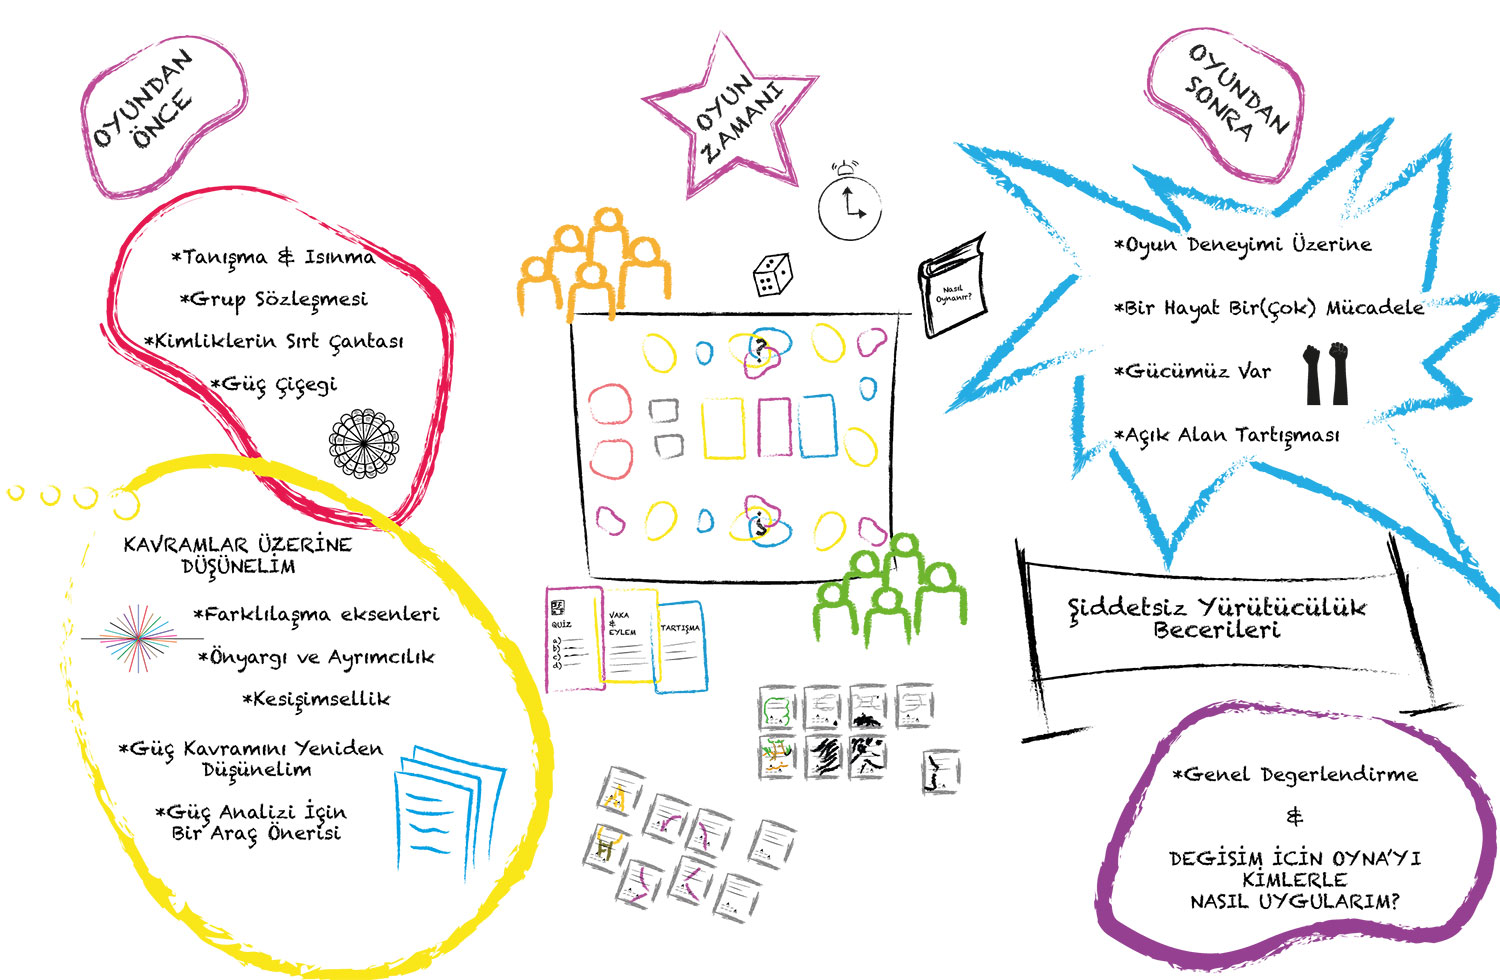 OYUNDAN
ÖNCE
*Tanışma & Isınma
*Grup Sözleşmesi
*Kimliklerin Sırt Çantası
*Güç Çiçegi
KAVRAMLAR ÜZERİNE
DÜŞÜNELİM
*Farklılaşma eksenleri
*Önyargı ve Ayrımcılık
*Kesişimsellik
*Güç Kavramını Yeniden
Düşünelim
*Güç Analizi İçin
Bir Araç Önerisi
OYUN
ZAMANI
Nasıl
Oynanır?
QUİZ
a)
b)
c)
d)
VAKA
&
EYLEM
TARTIŞMA
OYUNDAN
SONRA
*Oyun Deneyimi Üzerine
*Bir Hayat Bir(Çok) Mücadele
*Gücümüz Var
*Açık Alan Tartışması
Şiddetsiz Yürütücülük
Becerileri
*Genel Degerlendirme
&
DEGİSİM İCİN OYNA'YI
KİMLERLE
NASIL UYGULARIM?